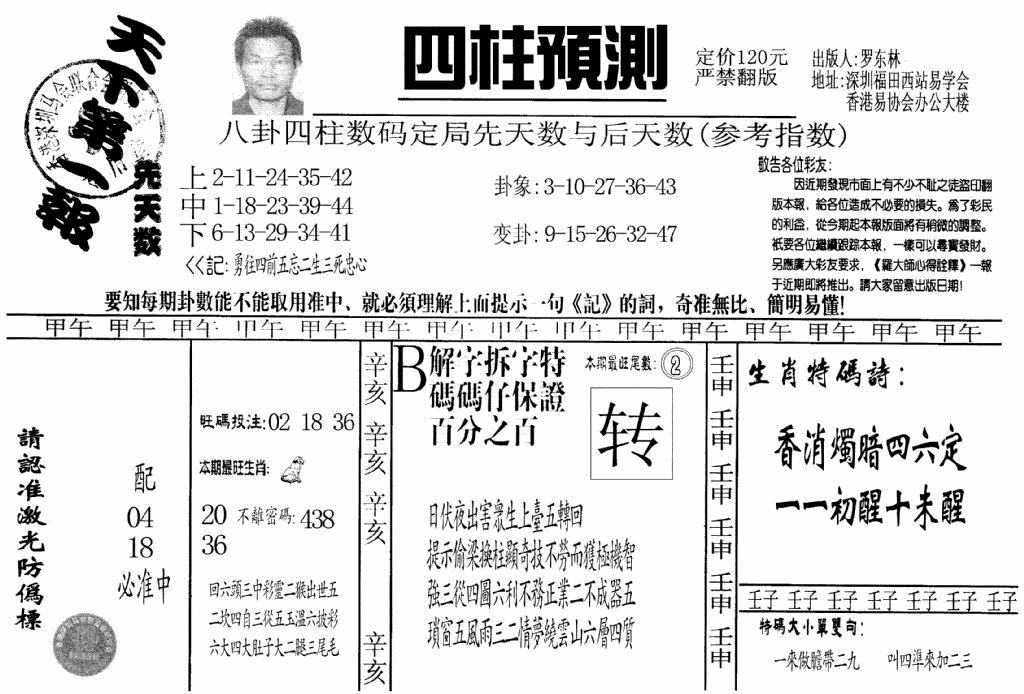 天下第一報
先天数
四柱預測
定价120元
严禁翻版
出版人:罗东林
地址:深圳福田西站易学会
香港易协会办公大楼
八卦四柱数码定局先天数与后天数(参考指数)
上 2-11-24-35-42
中 1-18-23-39-44
下 6-13-29-34-41
<<記:勇往四前五忘二生三死忠心
卦象:3-10-27-36-43
变卦:9-15-26-32-47
敬告各位彩友:
因近期發現市面上有不少不耻之徒盜印翻
版本報,給各位造成不必要的損失。爲了彩民
的利益,從今期起本報版面將有稍微的調整。
衹要各位繼續跟踪本報,一樣可以尋寶發財。
另應廣大彩友要求,《羅大師心得詮釋》一報
于近期即將推出。請大家留意出版日期!
要知每期卦數能不能取用准中、就必須理解上面提示一句《記》的詞,奇准無比、簡明易懂!
甲午 甲午 甲午 甲午 甲午 甲午 甲午 甲午 甲午 甲午 甲午 甲午 甲午 甲午 甲午
請認准激光防僞標
配
04
18
必准中
旺碼投注:02 18 36
本期最旺生肖:
20 不離密碼:438
36
回六頭三中彩靈二猴出世五
二坎四自三從五玉溫六披彩
六大四大肚子大腿二三尾毛
辛亥 辛亥 辛亥 辛亥
B解字拆字特
碼碼仔保證
百分之百
本期最旺尾數:2
转
日伏夜出害衆生上臺五轉回
提示偷梁换柱顯奇技不勞而獲極機智
強三從四圖六利不務正業二不成器五
瑣窗五風雨三二情夢繞雲山六層四質
壬申 壬申 壬申 壬申 壬申 壬申
生肖特碼詩:
香消燭暗四六定
一一初醒十未醒
壬子 壬子 壬子 壬子 壬子 壬子 壬子
特碼大小單雙句:
一來做膽帶二九 叫四準來加二三